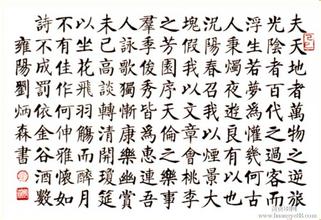 夫天地者萬物之逆旅
光陰者百代之過客而
浮生若夢為懽幾何古
人秉燭夜遊良有以也
況陽春召我以煙景大
塊假我以文章會桃李
之芳園序天倫之樂事
羣季俊秀皆為惠連吾
人詠歌獨慚康樂幽賞
未已高談轉清開瓊筵
以坐花飛羽觴而醉月
不有佳作何伸雅懷如
詩不成罰依金谷酒數
雍陽劉炳森書